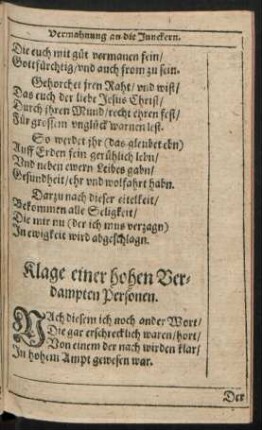 Vermahnung an die Junckern.
Die euch mit güt vermanen fein/
Gottfürchtig/vnd auch from zu sein.
Gehorchet jren Raht/ vnd wist/
Das euch der liebe Jesus Christ/
Durch jhren Mund/recht ehren fest/
Für grossem vnglück warnen lest.
So werdet jhr (das gleubet ebn)
Auff Erden fein gerühlich lebn/
Vnd neben ewern Leibes gabn/
Gesundheit/ehr vnd wolfahrt habn.
Darzu nach dieser eitelkeit/
Bekommen alle Seligkeit/
Die mir nu (der ich mus verzagn)
In ewigkeit wird abgeschlagn.
Klage einer hohen Ver-
dampten Personen.
NAch diesem ich noch ander Wort/
Die gar erschrecklich waren/hort/
Von einem der nach wirden klar/
In hohem Ampt gewesen war.
Der